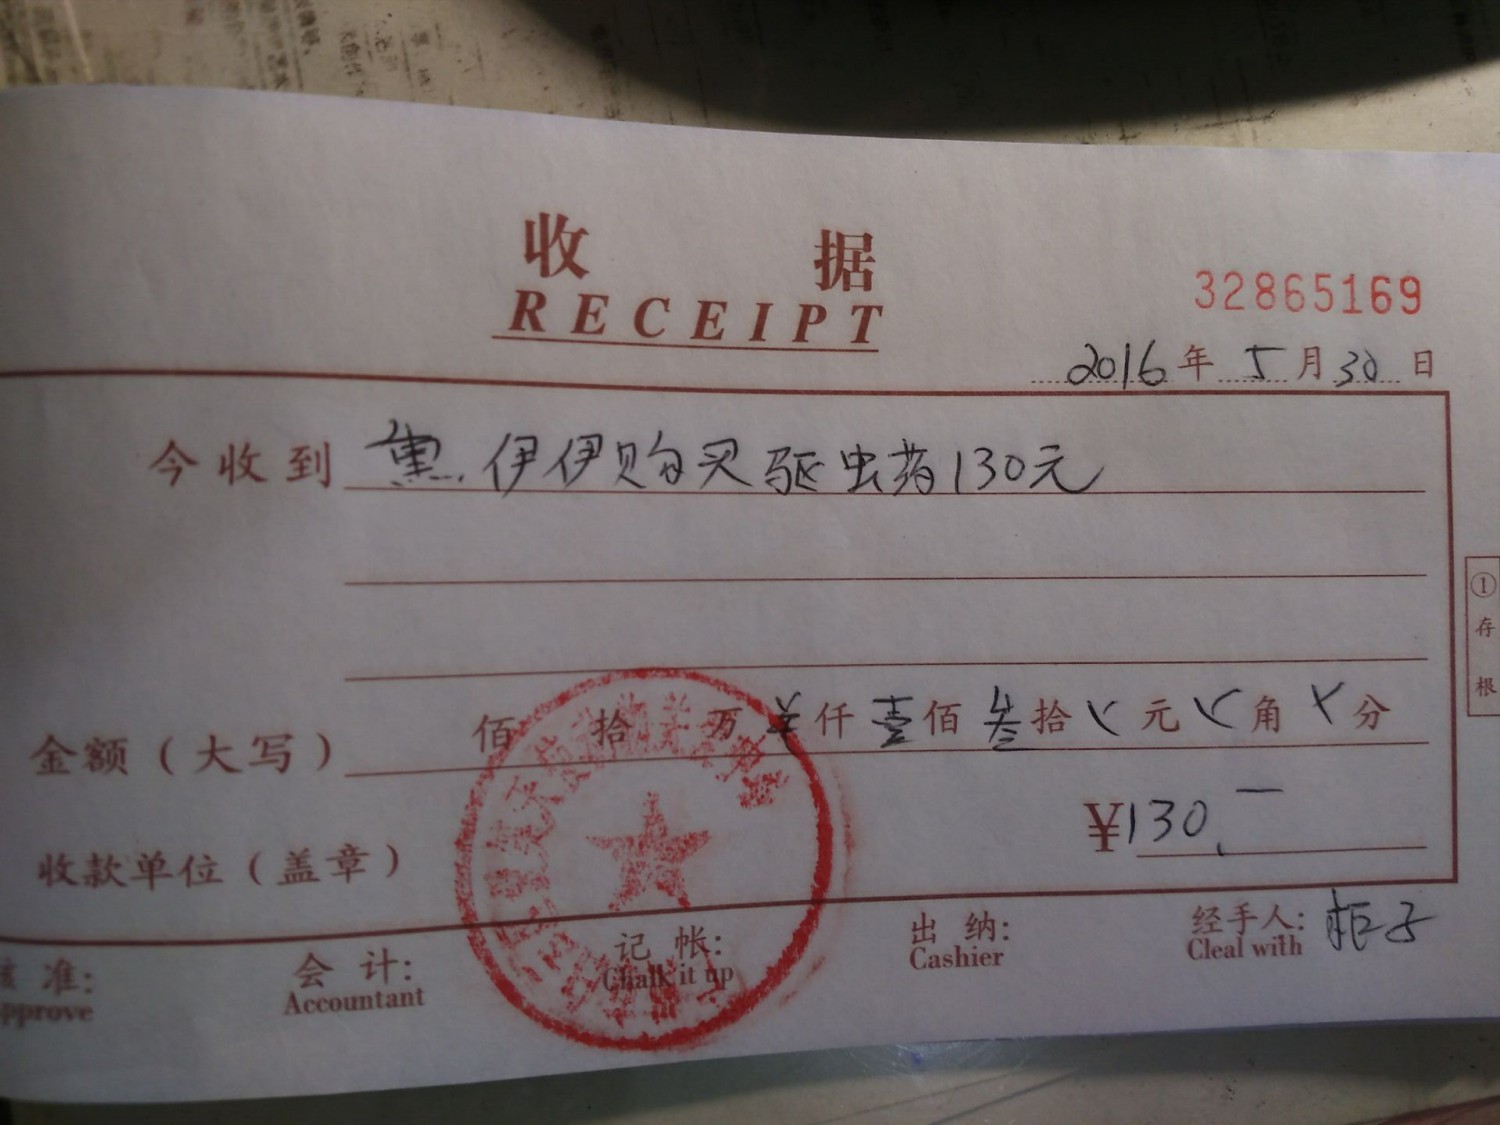 收 据
RECEIPT
32865169
2016 年 5 月 30 日
今收到 熏伊伊购买驱虫药130元
① 存根
金额(大写) 佰 拾 万 ¥ 仟 壹 佰 叁 拾 元 角 分
¥130.—
收款单位(盖章)
准: 会计: 记帐: 出纳: 经手人: 柜子
pprove Accountant Chalk it up Cashier Cleal with